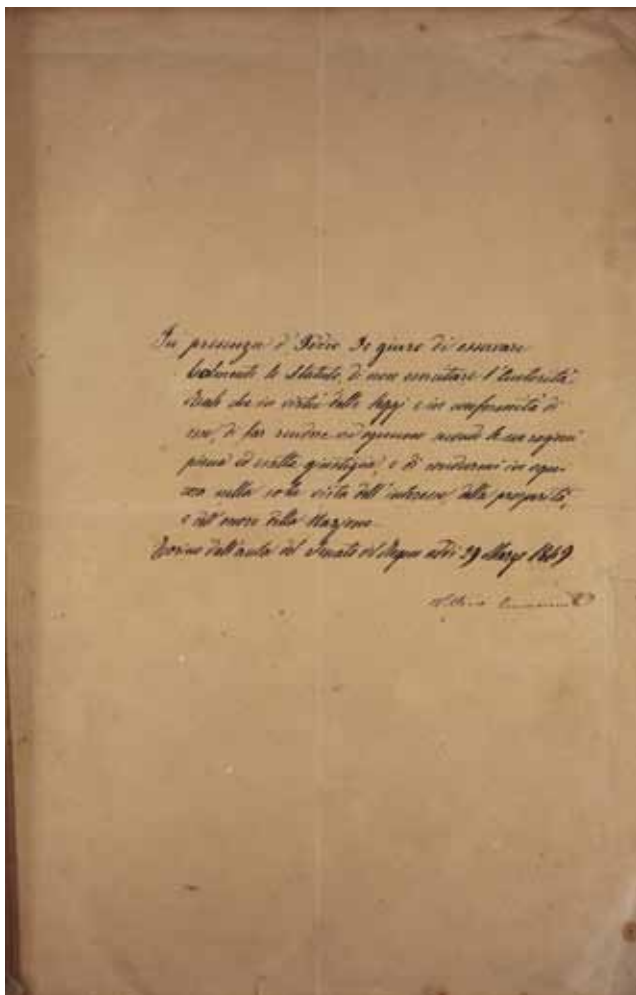 In presenza d'Iddio Io giuro di osservare
lealmente lo Statuto, di non esercitare l'Autorità
Reale che in virtù delle leggi e in conformità di
esse, di far rendere ad ognuno secondo le sue ragioni
piena ed esatta giustizia, e di condurmi in ogni
cosa nella sola vista dell'interesse, della prosperità,
e dell'onore della Nazione.
Torino dall'aula del Senato del Regno addì 29 Marzo 1849
Vittorio Emanuele